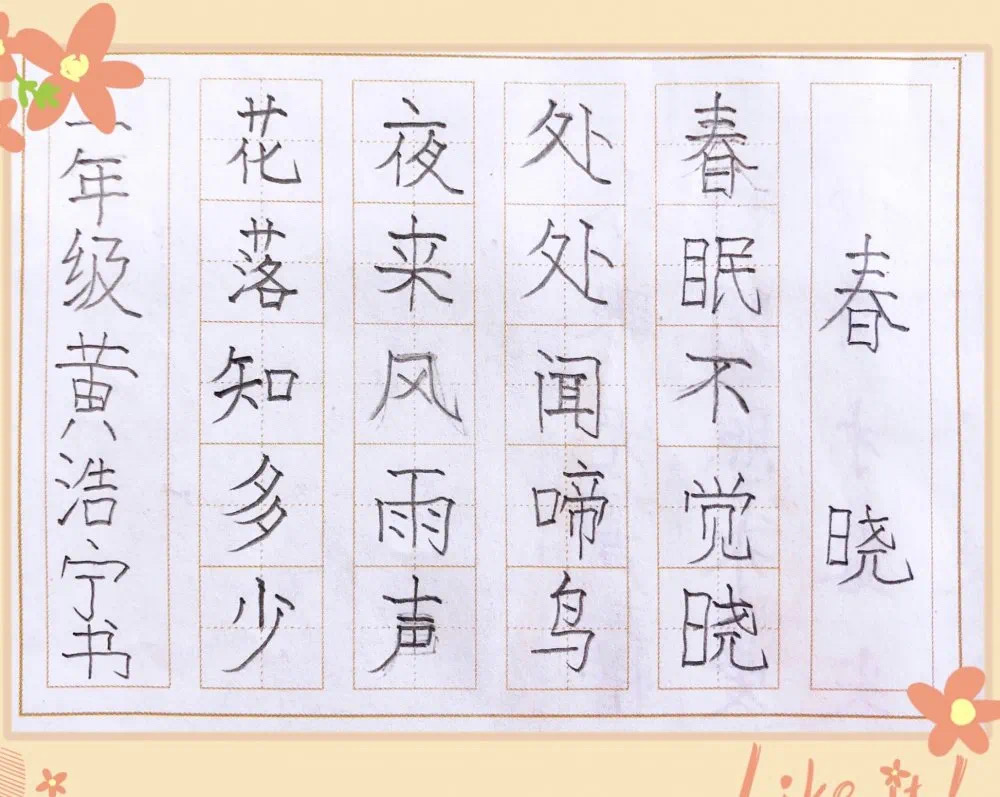 春晓
春眠不觉晓
处处闻啼鸟
夜来风雨声
花落知多少
一年级黄浩宁书
Like it!